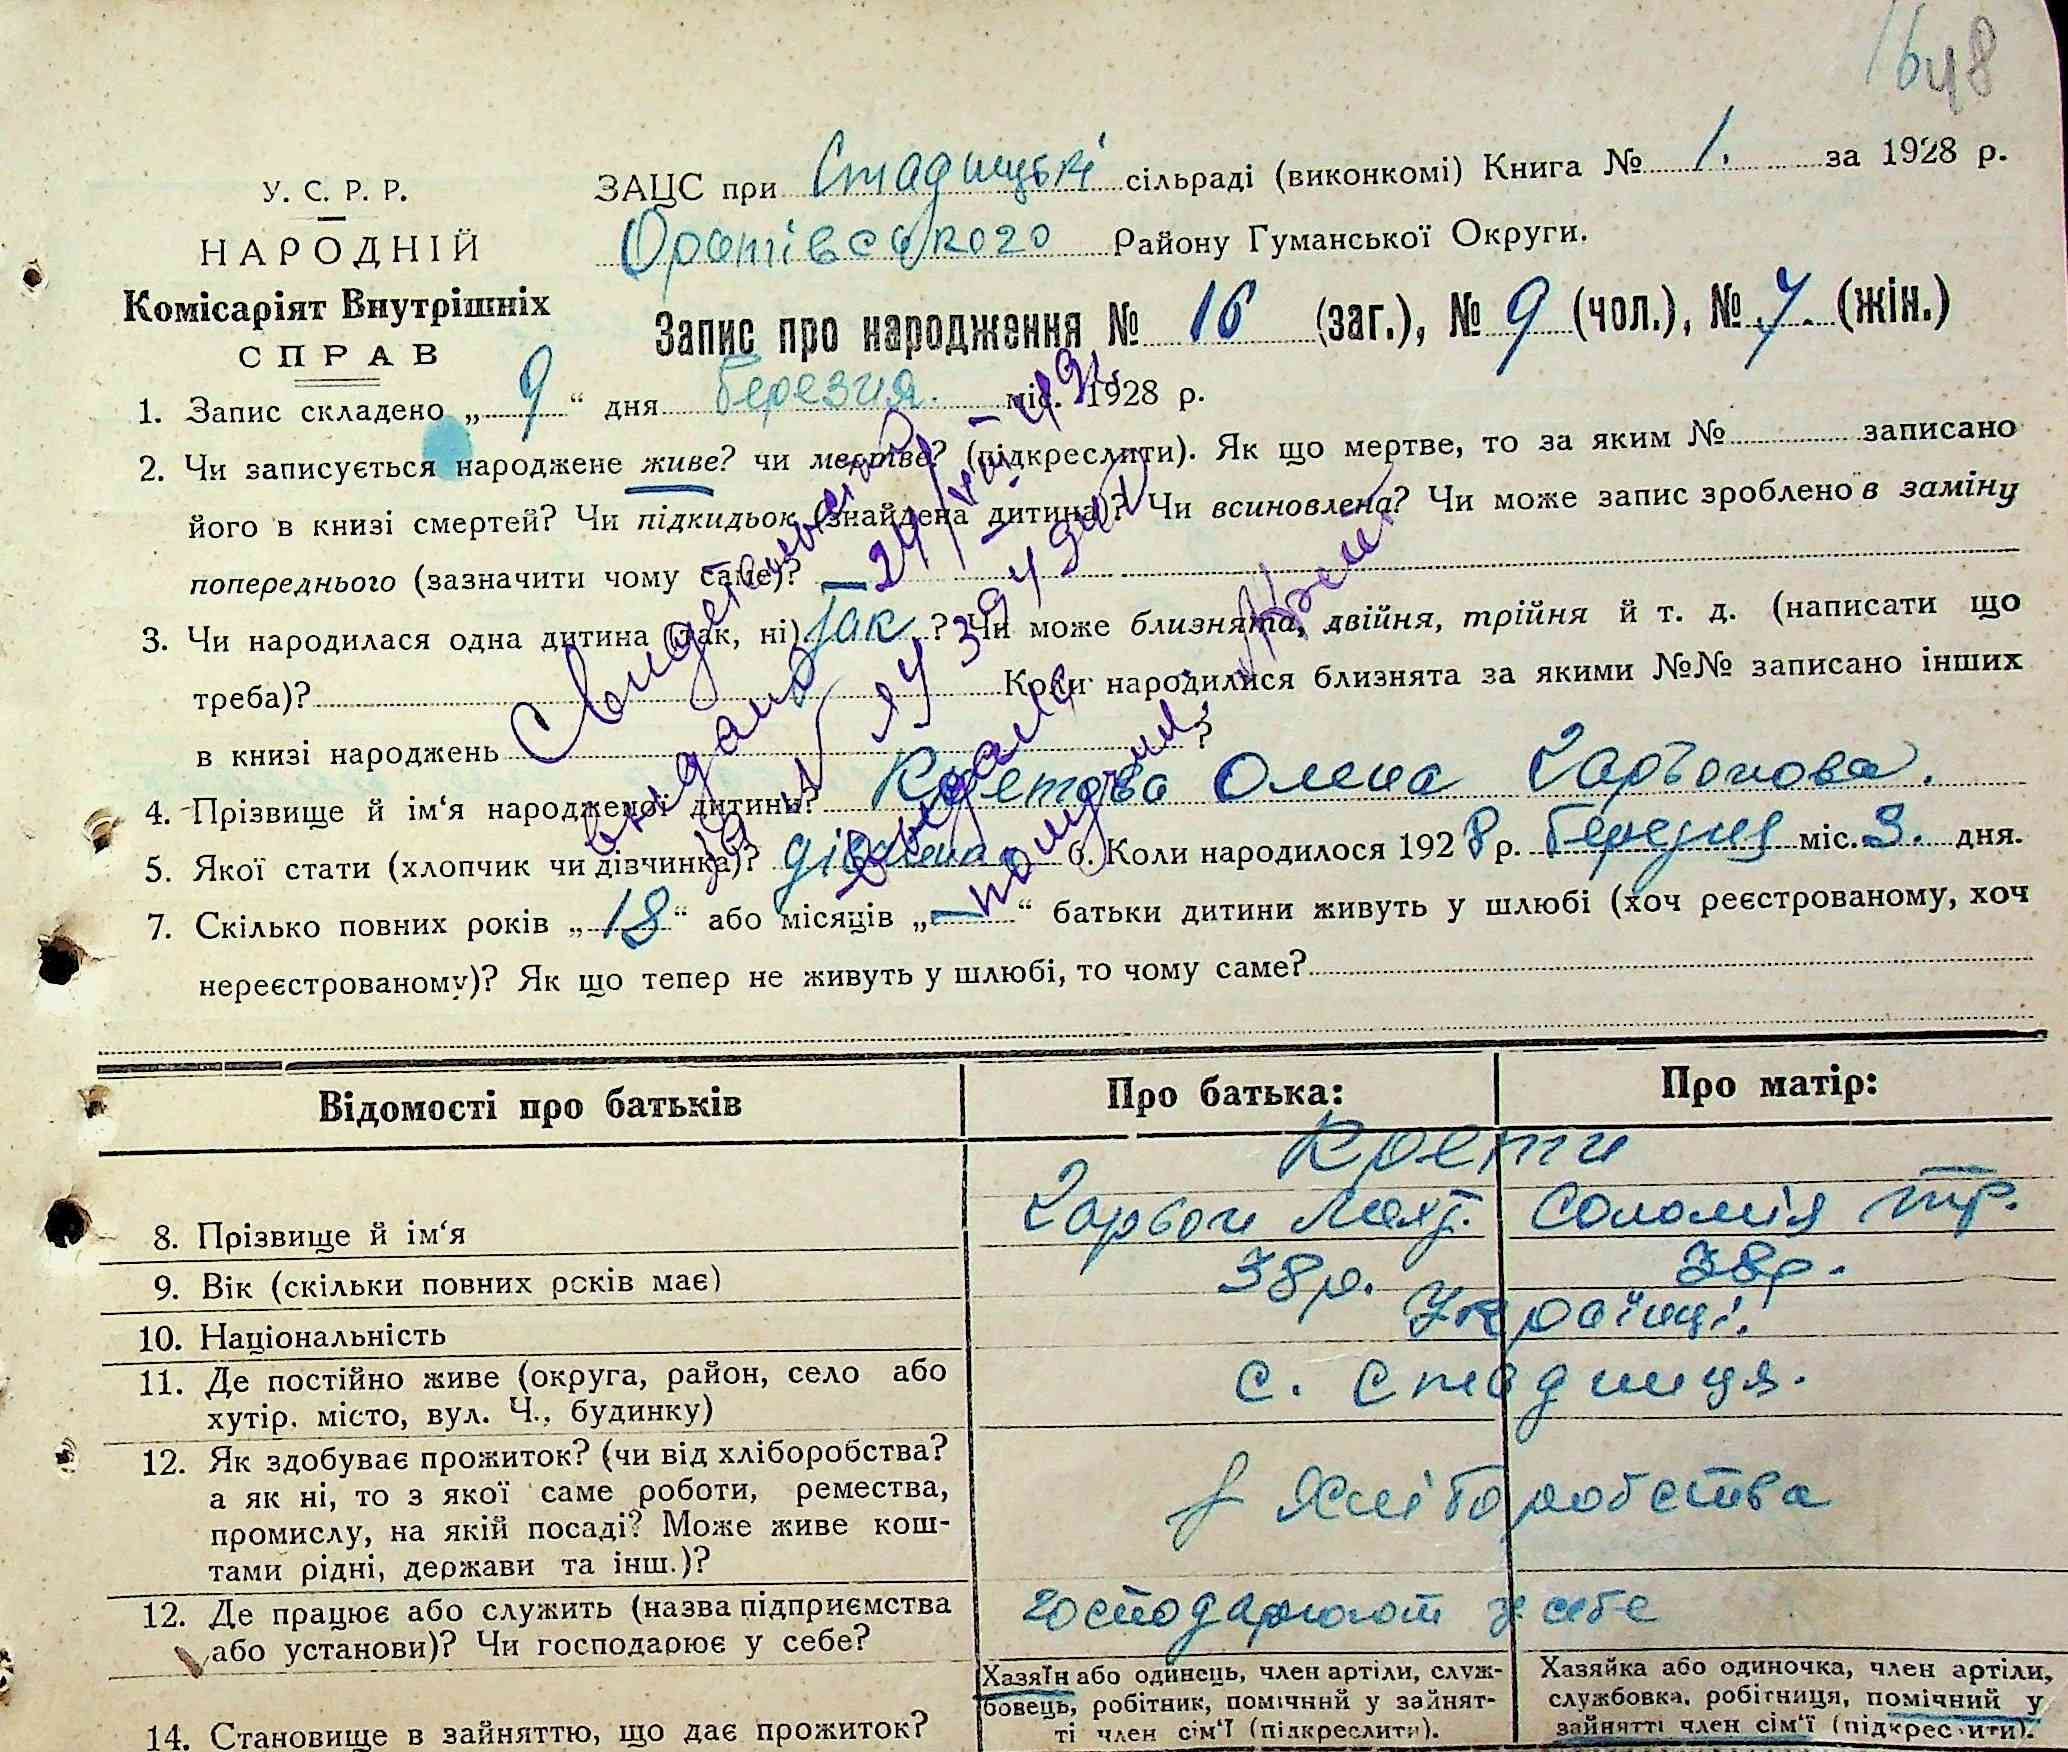 16 48
У. С. Р. Р.
НАРОДНІЙ
Комісаріят Внутрішніх
СПРАВ
ЗАЦС при Стадицькі сільраді (виконкомі) Книга № 1. за 1928 р.
Оратівського Району Гуманської Округи.
Запис про народження № 16 (заг.), № 9 (чол.), № 7. (жін.)
1. Запис складено „ 9 “ дня березня. міс. 1928 р.
2. Чи записується народжене живе? чи мертве? (підкреслити). Як що мертве, то за яким № записано
його в книзі смертей? Чи підкидьок (знайдена дитина)? Чи всиновлена? Чи може запис зроблено в заміну
попереднього (зазначити чому саме)? —
3. Чи народилася одна дитина (так, ні) так ? Чи може близнята, двійня, трійня й т. д. (написати що
треба)? Коли народилися близнята за якими №№ записано інших
в книзі народжень ?
4. Прізвище й ім‘я народженої дитини? Кретова Олена Харьонова.
5. Якої стати (хлопчик чи дівчинка)? 6. Коли народилося 1928 р. березня міс. 3. дня.
7. Скілько повних років „ 18 “ або місяців „ — “ батьки дитини живуть у шлюбі (хоч реєстрованому, хоч
нереєстрованому)? Як що тепер не живуть у шлюбі, то чому саме?
видано 24/VII-49
Відомості про батьків Про батька: Про матір:
8. Прізвище й ім‘я Соломія
9. Вік (скільки повних років має) 38 р. 38 р.
10. Національність Українці.
11. Де постійно живе (округа, район, село або
хутір. місто, вул. Ч., будинку) с. Стадниця.
12. Як здобуває прожиток? (чи від хліборобства?
а як ні, то з якої саме роботи, ремества,
промислу, на якій посаді? Може живе кош-
тами рідні, держави та інш.)? Хліборобства
12. Де працює або служить (назва підприємства
або установи)? Чи господарює у себе? господарюют у себе
14. Становище в зайняттю, що дає прожиток?
Хазяїн або одинець, член артіли, служ-
бовець, робітник, помічний у зайнят-
ті член сім‘ї (підкреслити).
Хазяйка або одиночка, член артіли,
службовка, робітниця, помічний у
зайнятті член сім‘ї (підкреслити).